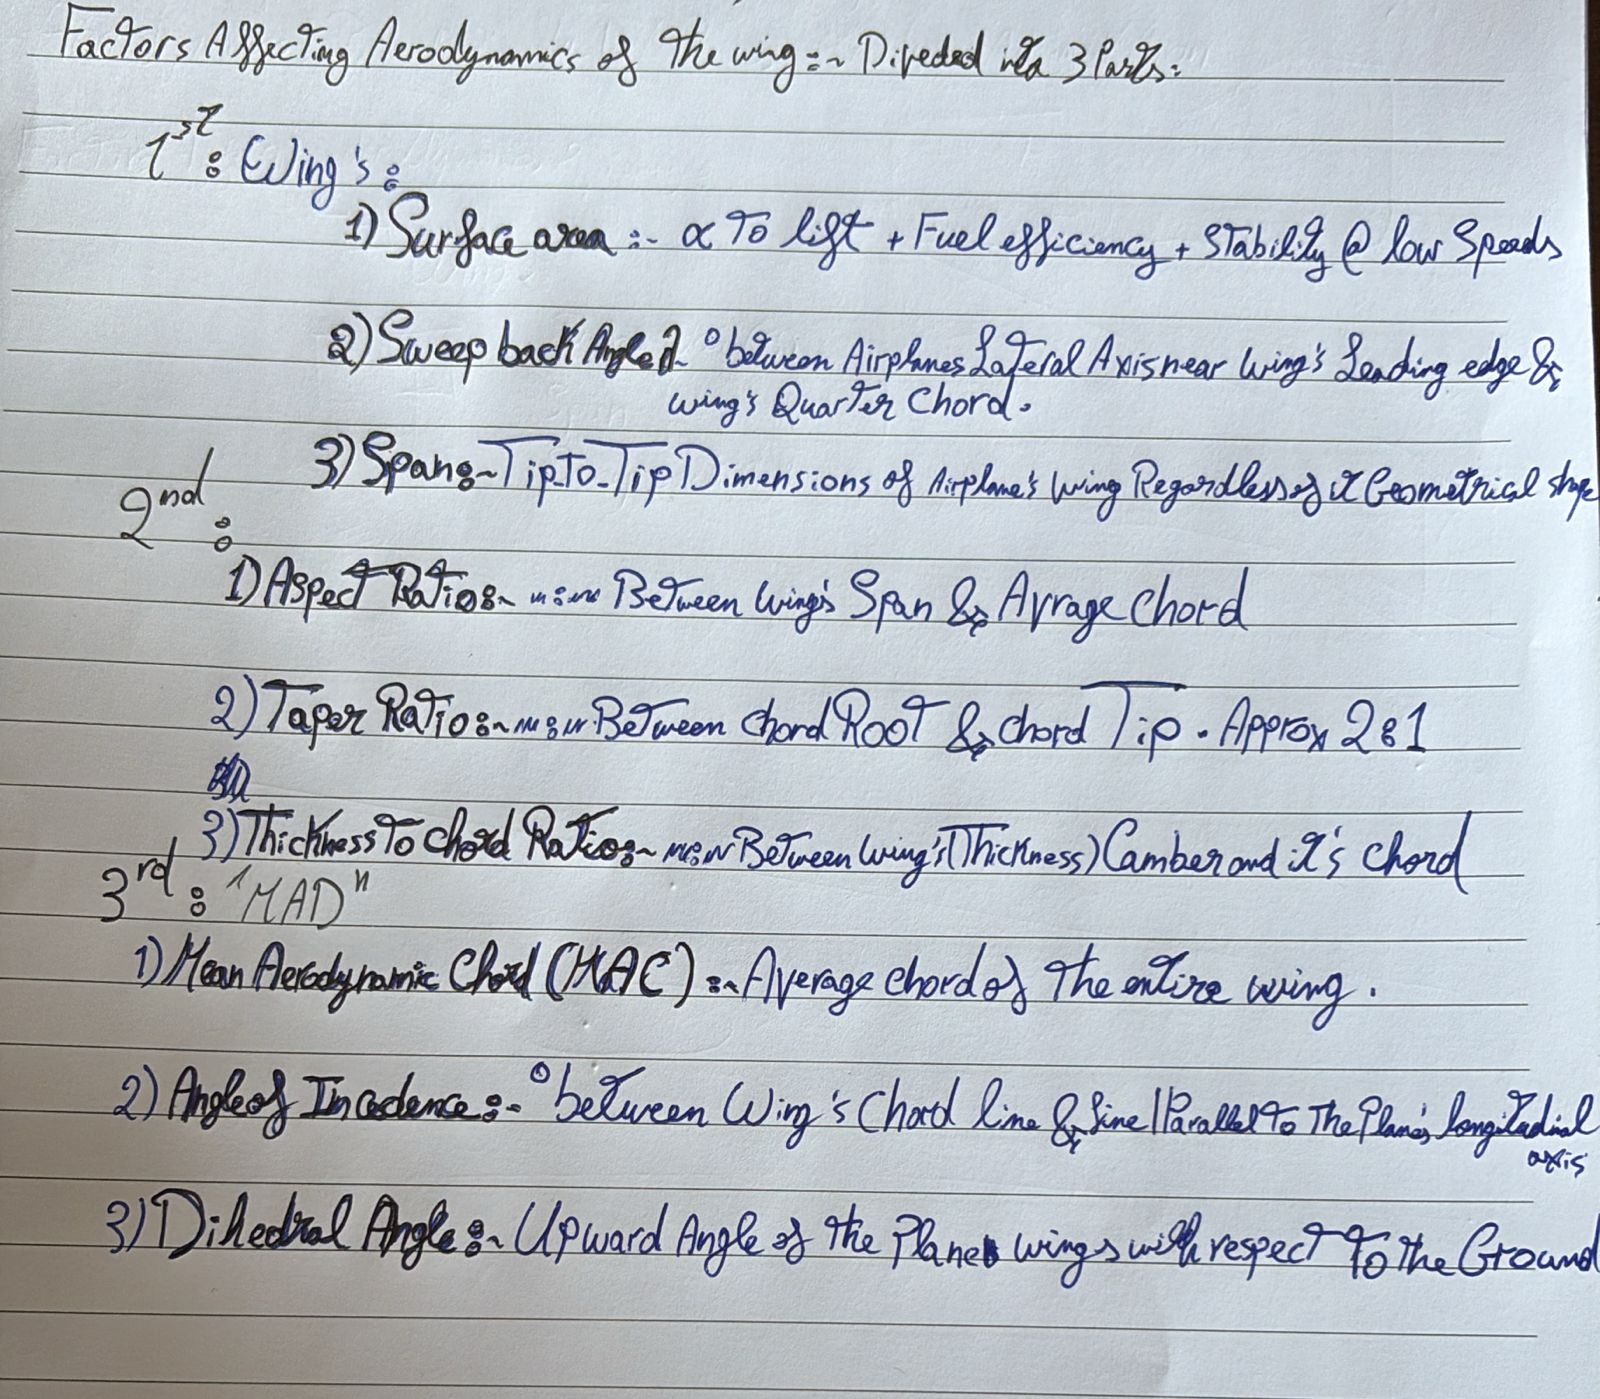 Factors Affecting Aerodynamics of the wing:~ Diveded into 3 Parts:
1st : Wing's :
1) Surface area :- ∝ To lift + Fuel efficiency + Stability @ low Speeds
2) Sweep back Angle :~ ° between Airplanes Lateral Axis near wing's Leading edge &
wing's Quarter Chord.
3) Span :~ Tip_To_Tip Dimensions of Airplane's wing Regardless of it Geometrical shape
2nd :
1) Aspect Ratio :~ Between wing's Span & Avrage Chord
2) Taper Ratio :~ Between Chord Root & chord Tip . Approx 2:1
3) Thickness To Chord Ratio :~ Between wing's (Thickness) Camber and it's Chord
3rd : "MAD"
1) Mean Aerodynamic Chord (MAC) :~ Average chord of the entire wing .
2) Angle of Incedence :- ° between Wing's Chord line & line || Parallel To The Plane's longitudinal
axis
3) Dihedral Angle :~ Upward Angle of the Plane wings with respect To the Ground